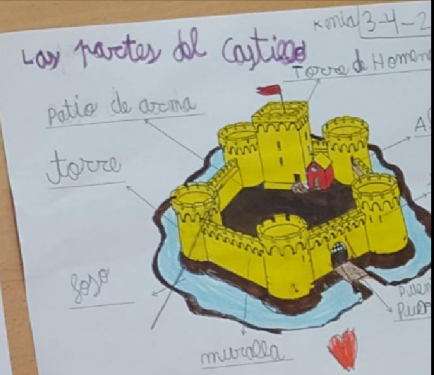 Xenia 3-4-2
Las partes del castillo
Torre de Homen
patio de arma
A
torre
foso
Puen
muralla